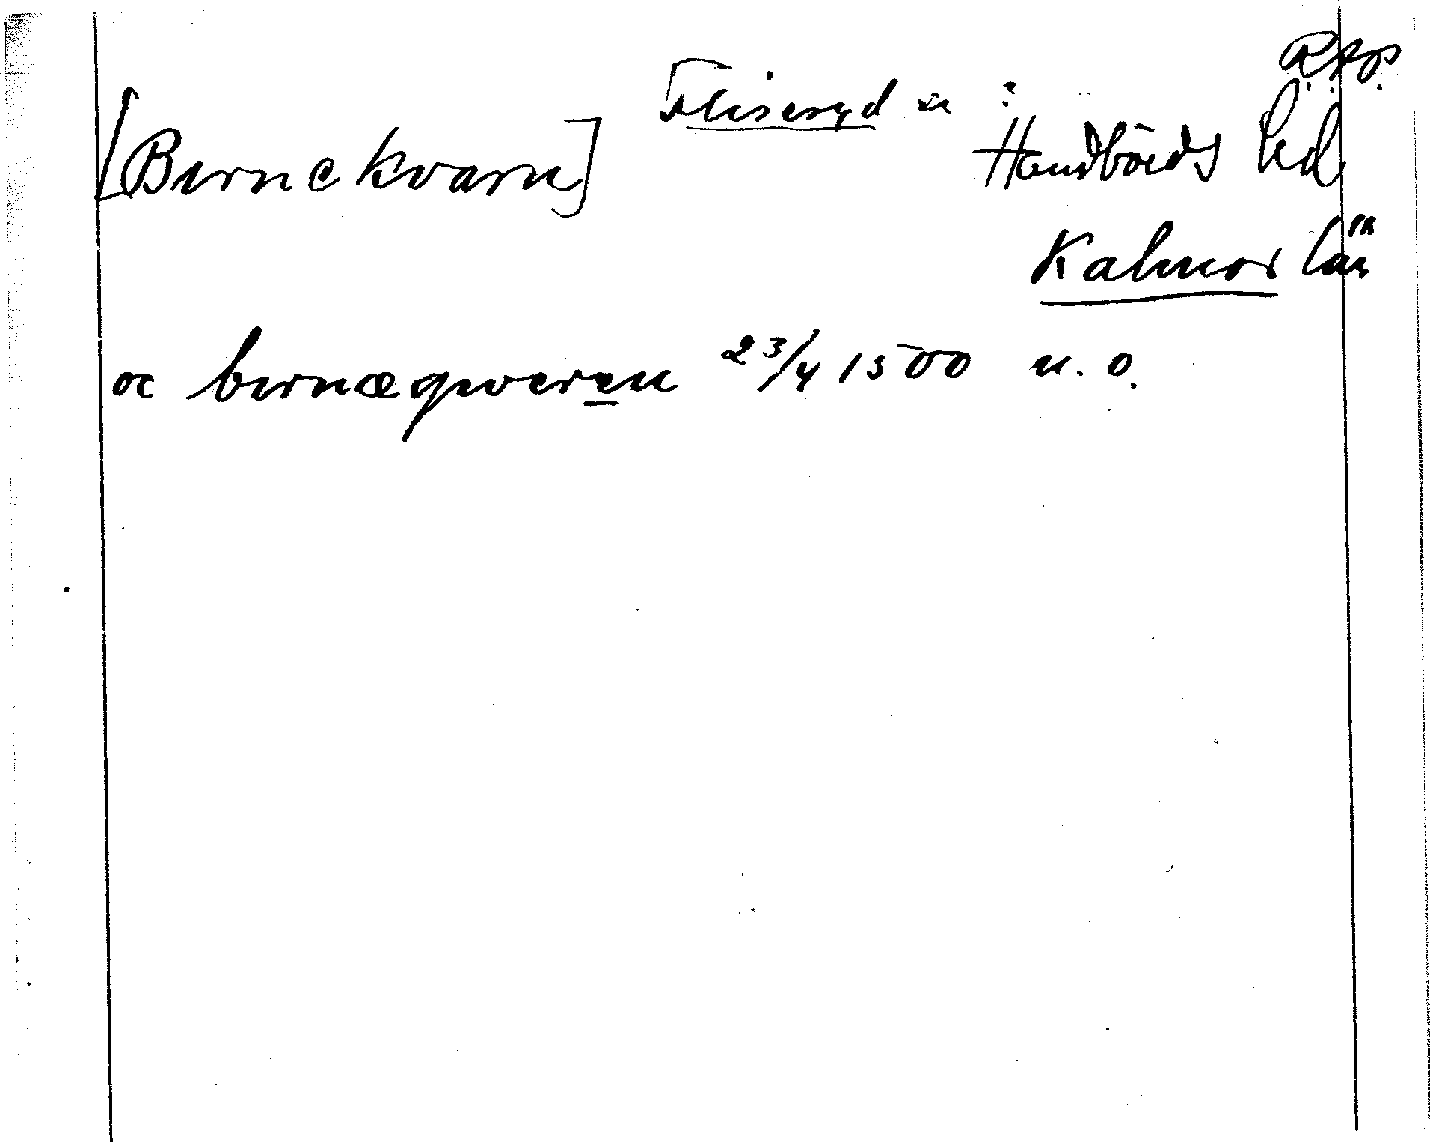 RAp.
[Birnekvarn] Fliseryd sn ?
Handbörds hd
Kalmar län
oc birnæqweren 23/4 1500 u. o.